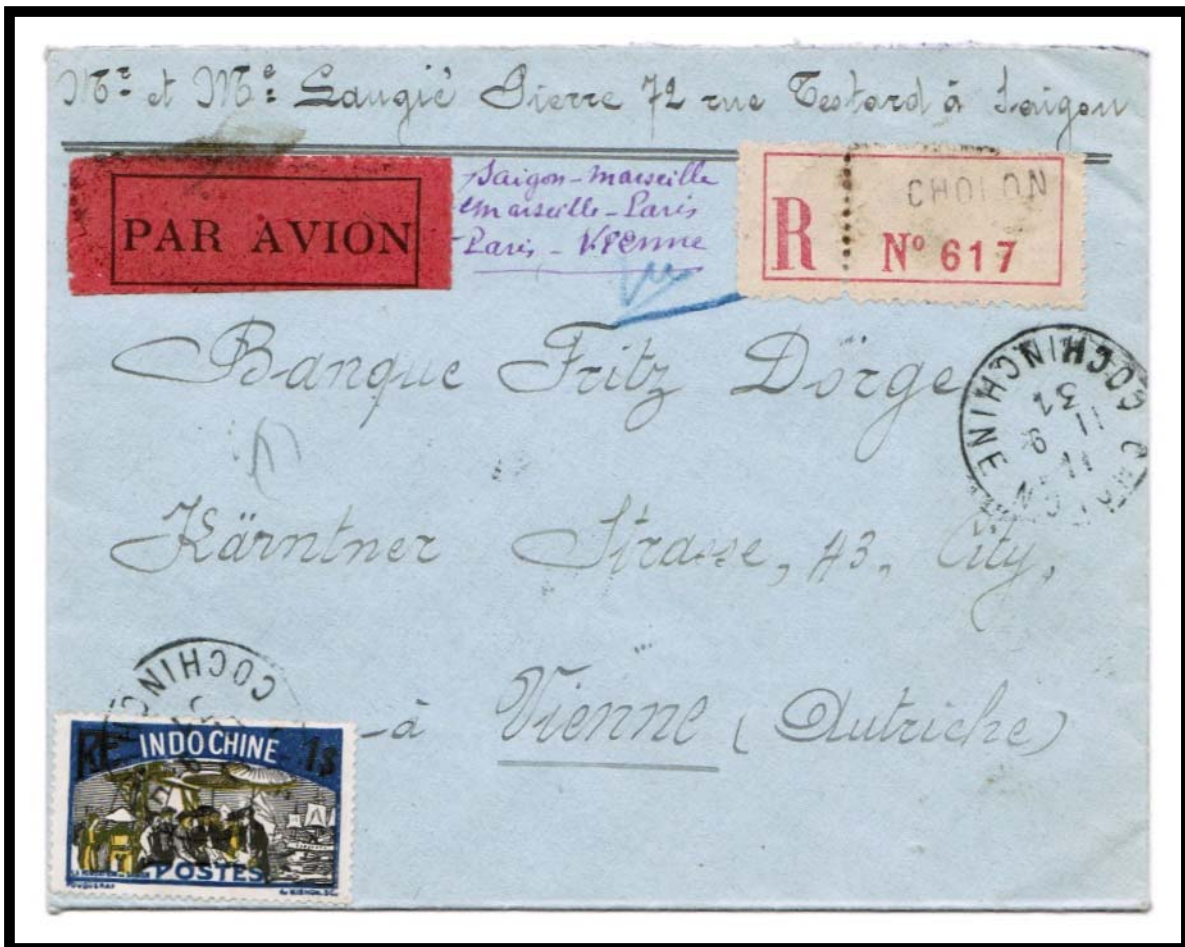 Mr et Me Laugié Pierre 72 rue Testard à Saigon
PAR AVION
Saigon - Marseille
Marseille - Paris
Paris - Vienne
R
CHOLON
N° 617
Banque Fritz Dörge
COCHINCHINE
11 9
32
Kärntner Strasse, 43, City,
à Vienne (Autriche)
COCHINCH
RF INDOCHINE 1$
POSTES